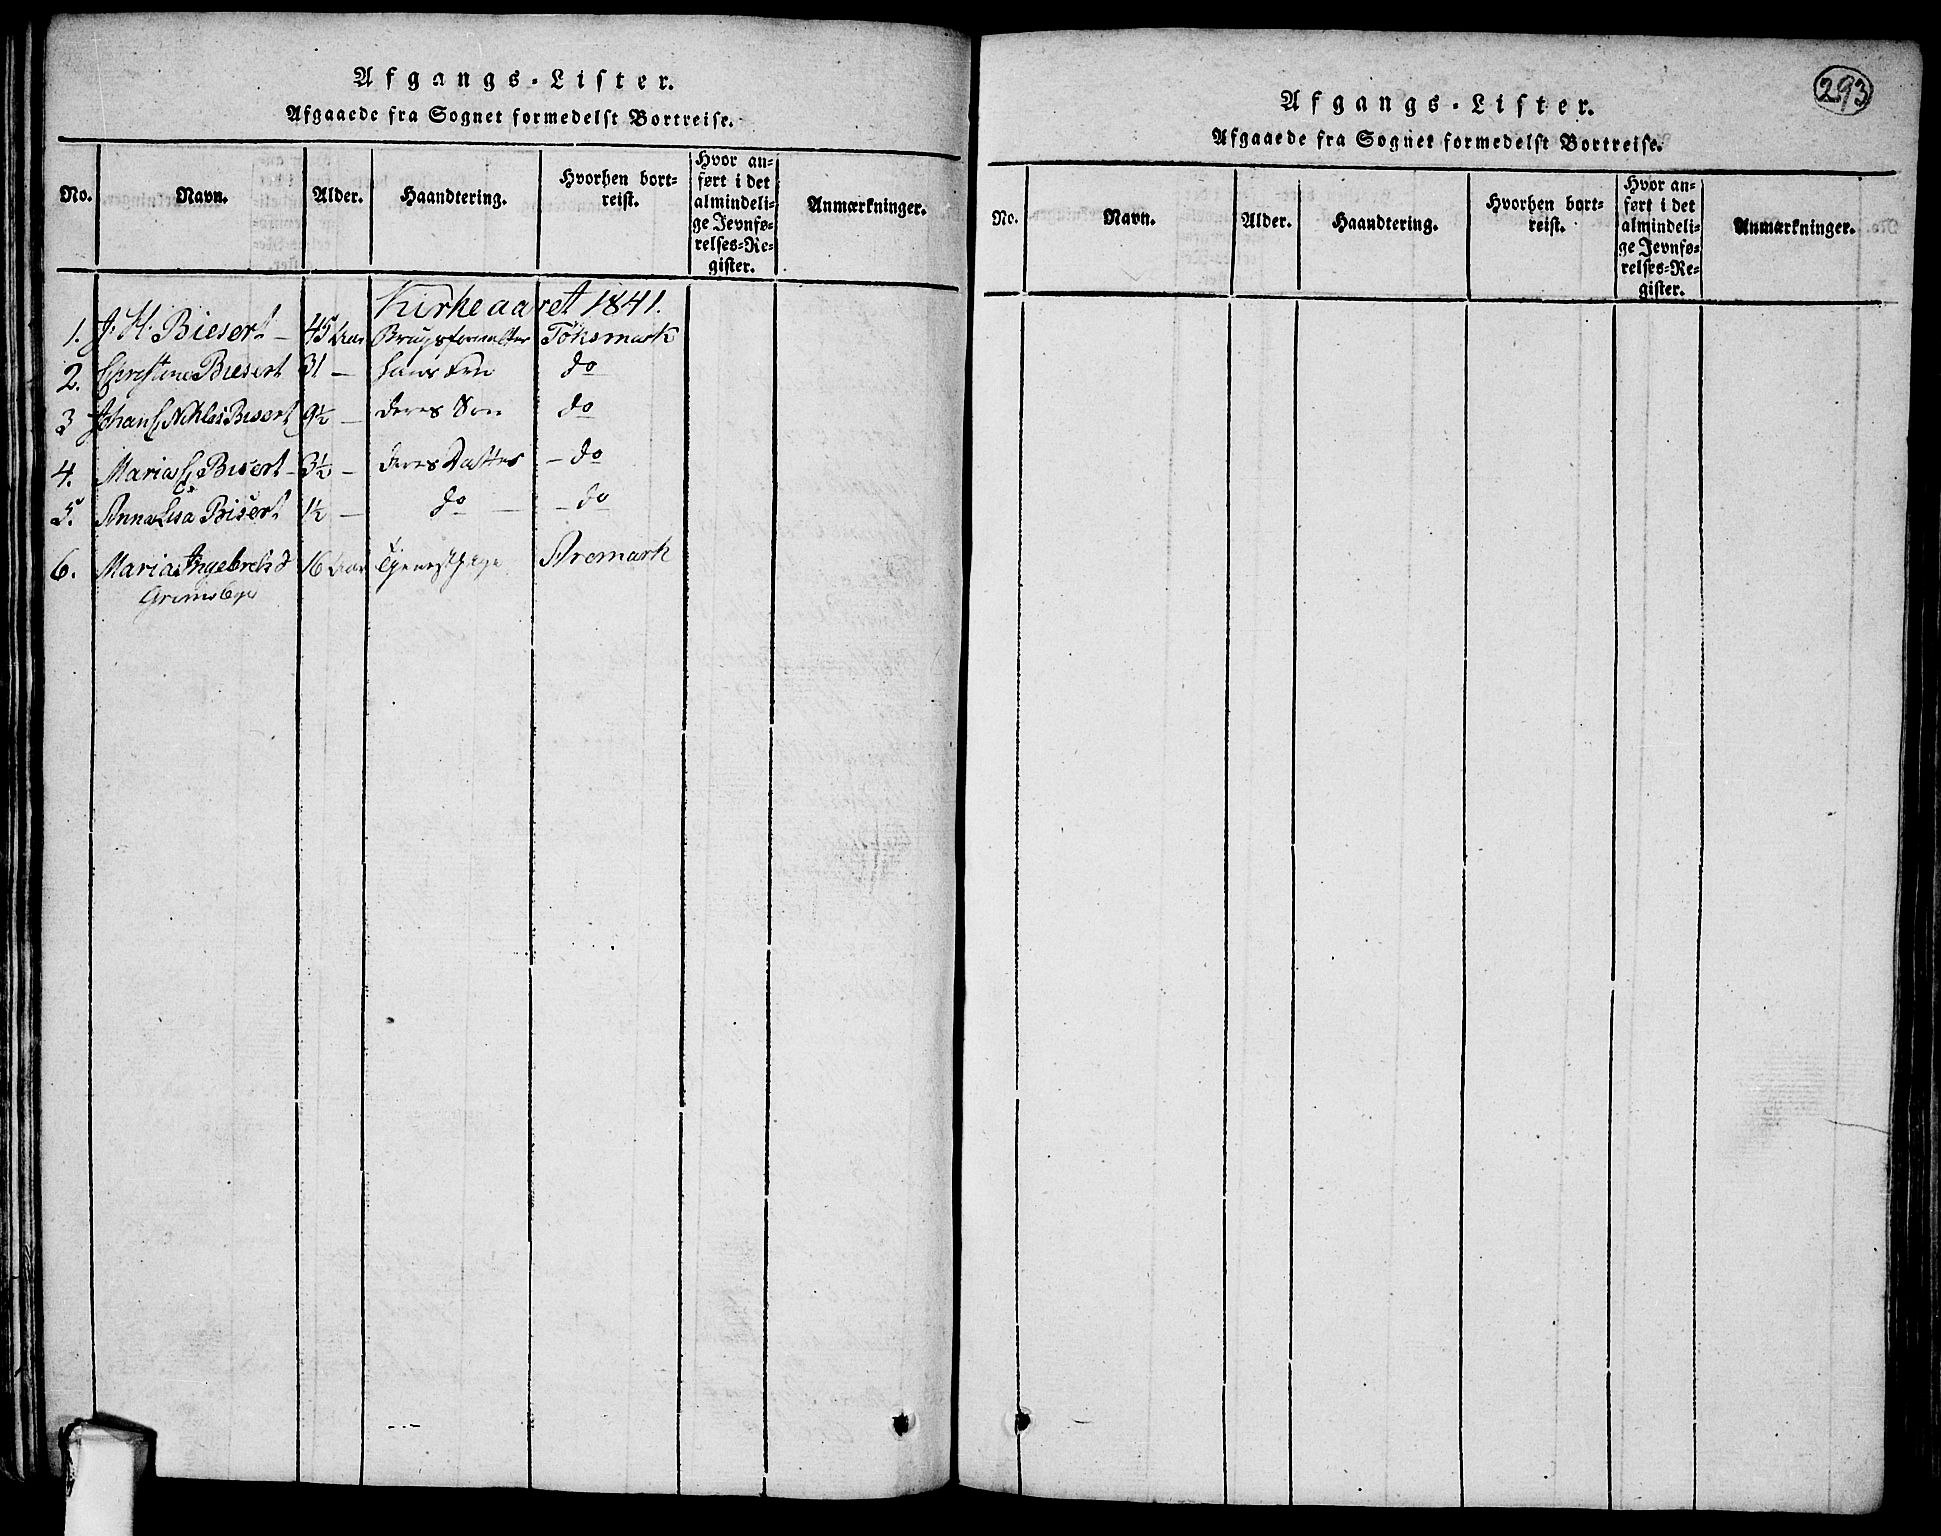 Afgangs-Lister.
Afgaaede fra Sognet formedelst Bortreise.
No. Navn. Alder. Haandtering. Hvorhen bort-reist. Hvor an-ført i det almindeli-ge Jevnfø-relses-Re-gister. Anmærkninger.
Kirkeaaret 1841.
1. J. H. Biesert - 45 Aar Tøksmark
2. Christine Biesert 31 - hans Kone do
3 Johan Biesert 9½ - deres Søn do
4. Maria C Bisert - 3½ - deres Datter - do
5. Anna Lisa Bisert 1½ - do - do
6. Maria Ingebretsd 16 Aar Tjenestpige Aremark
Grimsbye
293
Afgangs-Lister.
Afgaaede fra Sognet formedelst Bortreise.
No. Navn. Alder. Haandtering. Hvorhen bort-reist. Hvor an-ført i det almindeli-ge Jevnfø-relses-Re-gister. Anmærkninger.